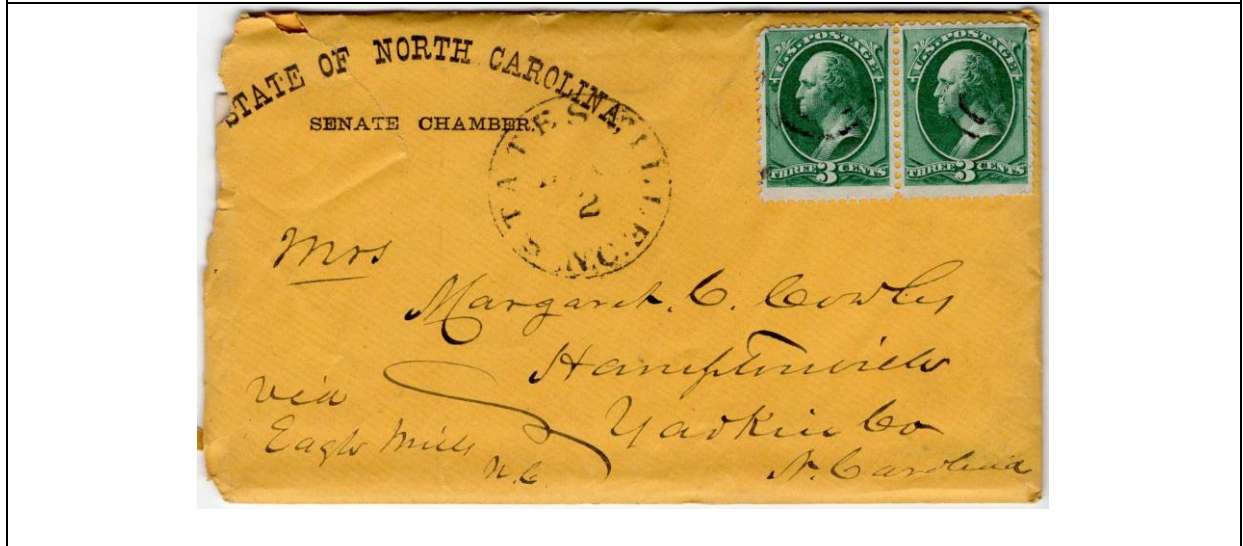 STATE OF NORTH CAROLINA,
SENATE CHAMBER.
U.S. POSTAGE
THREE 3 CENTS
U.S. POSTAGE
THREE 3 CENTS
STATESVILLE N.C.
2
Mrs
Margaret. C. Cowles
Hamptonville
Yadkin Co
N. Carolina
via
Eagle Mills
N.C.